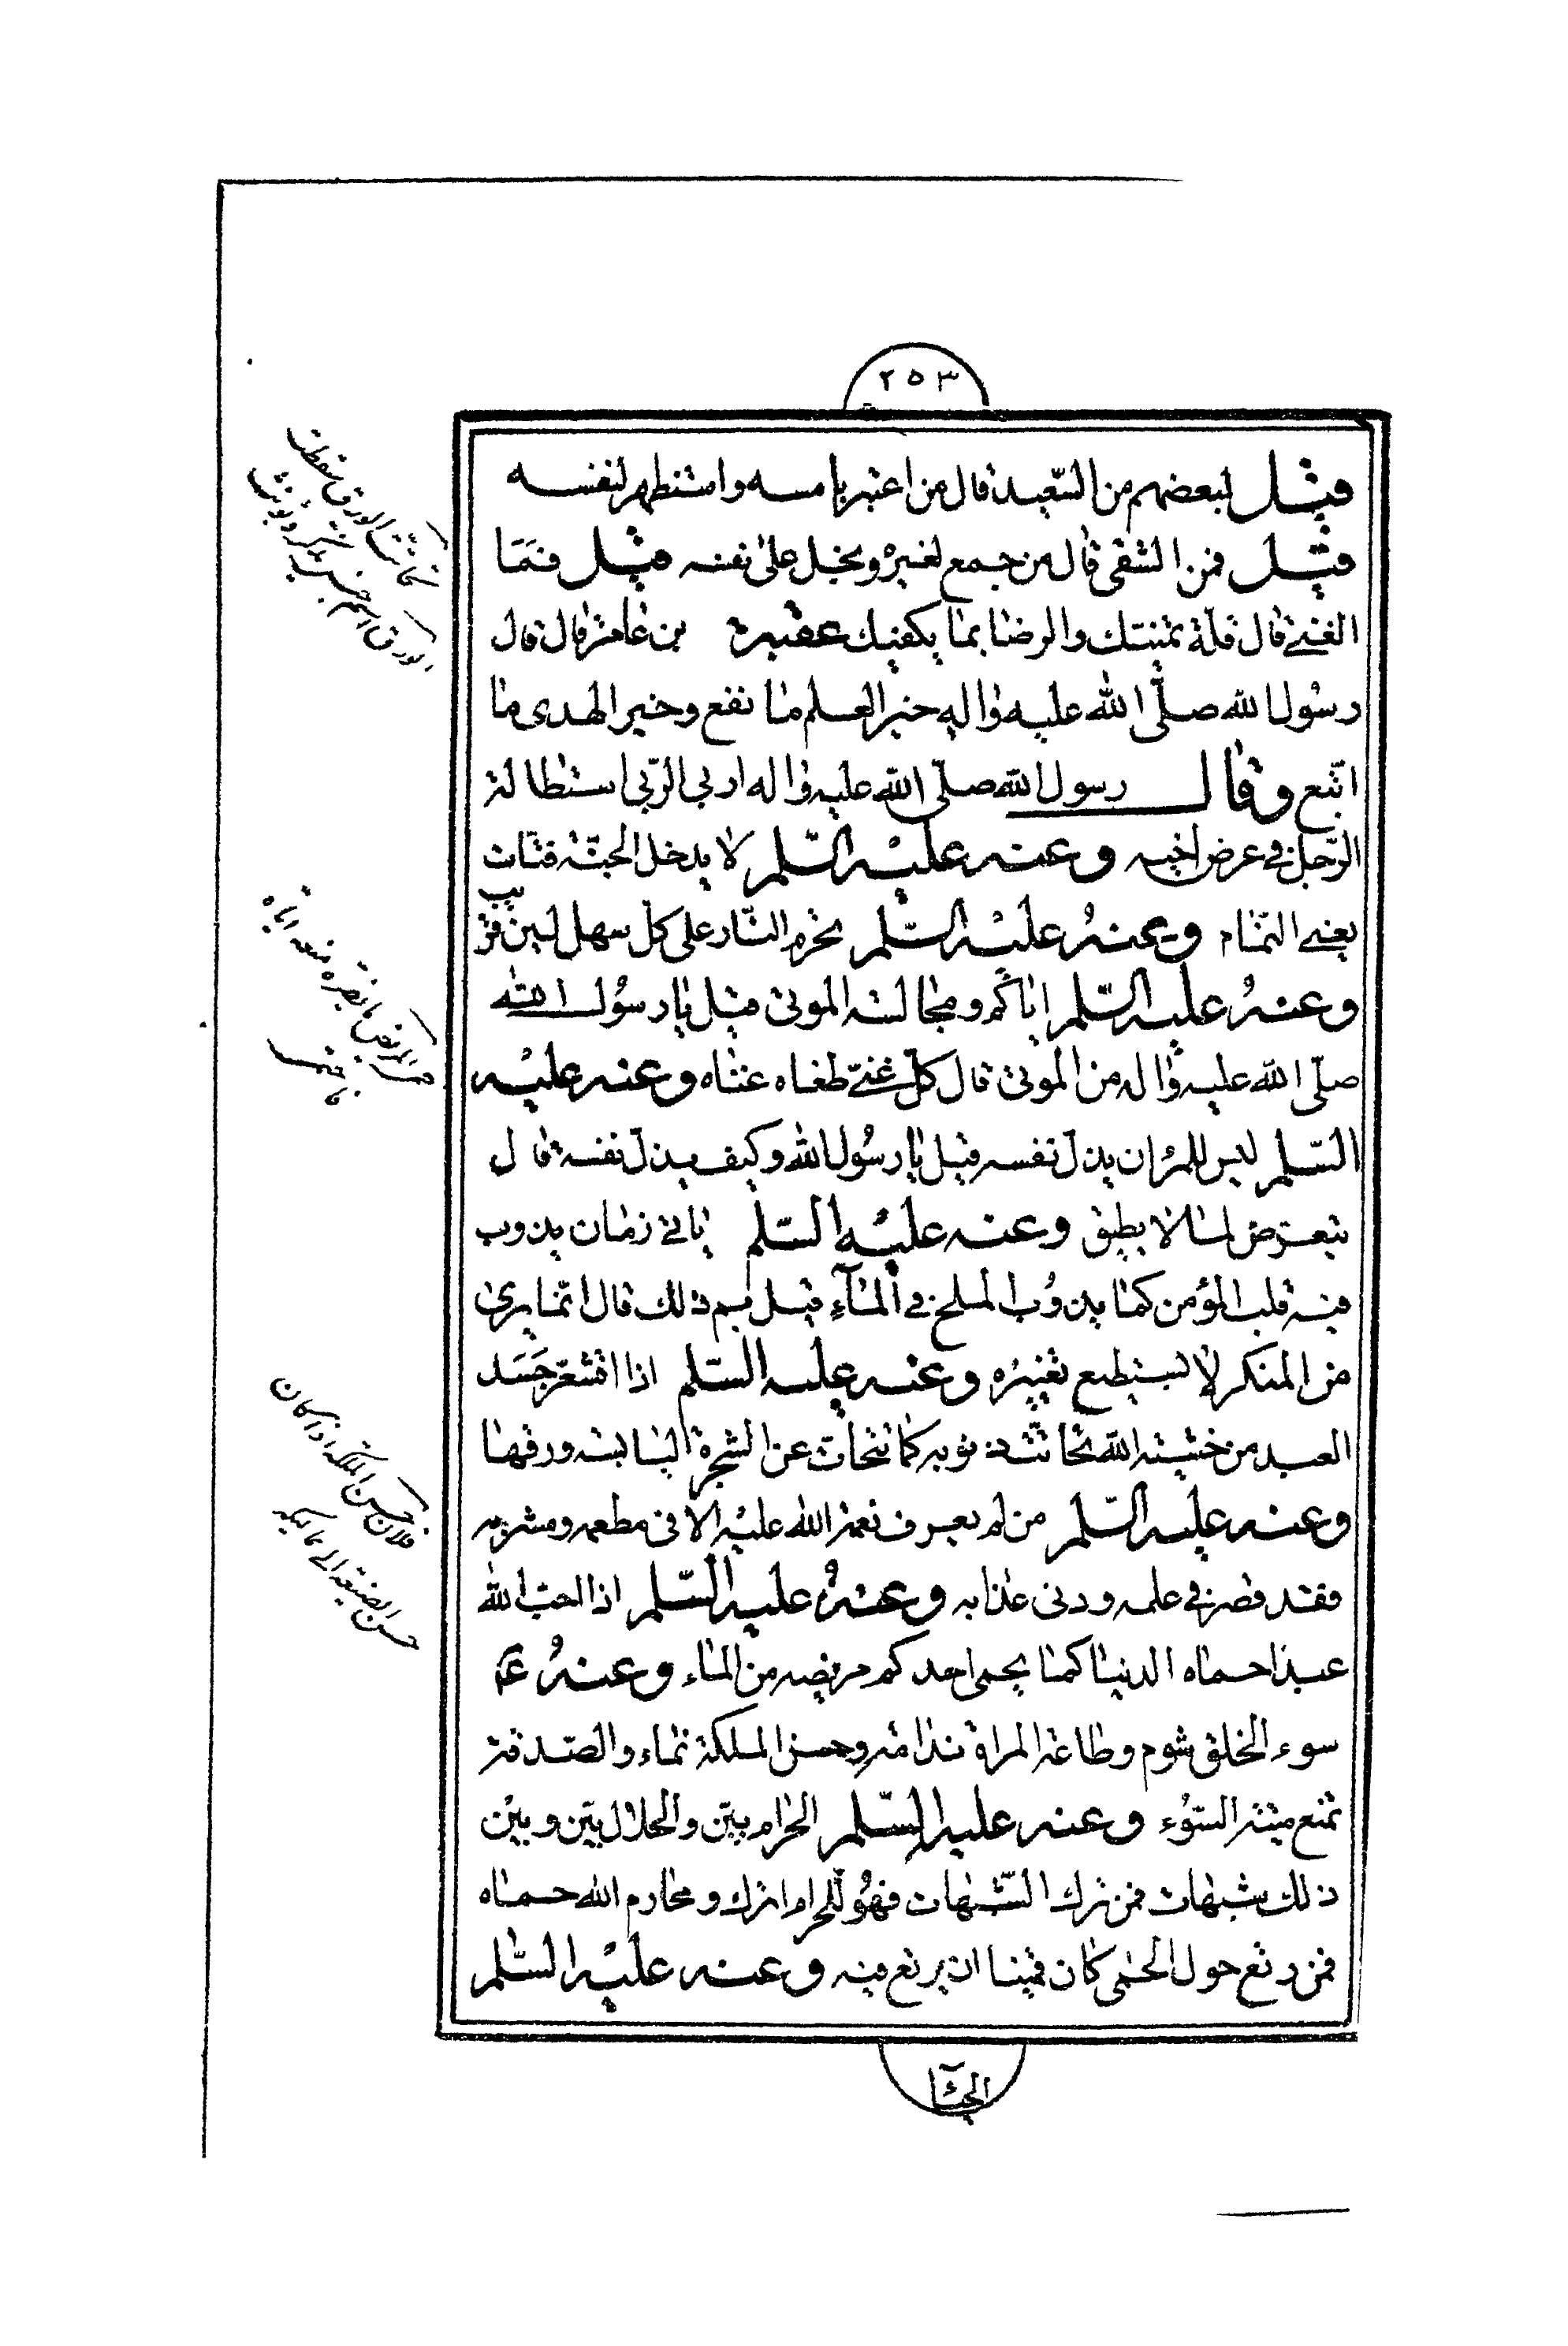 ٢٥٣
قيل لبعضهم من السّعيد قال من اعتبر بامسه واستظهر لنفسه
قيل فمن الشقى قال من جمع لغيره وبخل على نفسه قيل فَمَا
الغنى قال قلّة تمنيك والرضا بما يكفيك عقبة بن عامر قال قال
رسُول الله صلّى الله عليه واله خير العلم ما نفع وخير الهدى ما
اتّبع وقال رسول الله صلّى الله عليه واله اربى الرّبى استطالة
الرّجل فى عرض اخيه وعنه عليه السّلم لا يدخل الجنّة قتّات
يعنى النمّام وعنه عليه السّلم تحرم النّار على كلّ سهل ليّن قريب
وعنه عليه السّلم اياكم ومجالسة الموتى قيل يا رسُول الله
صلّى الله عليه واله من الموتى قال كلّ غنىّ طغاه غناه وعنه عليه
السّلم ليس للمرء ان يذلّ نفسه قيل يا رسُول الله وكيف يذلّ نفسه قال
يتعرّض لما لا يطيق وعنه عليه السّلم ياتى زمان يذوب
فيه قلب المؤمن كما يذوُب الملح فى المآء قيل بم ذلك قال انّما يرى
من المنكر لا يستطيع تغييره وعنه عليه السّلم اذا اقشعرّ جَسَد
العبد من خشية الله تحاتّت ذنوبه كما تتحات عن الشجرة اليابسة ورقها
وعنه عليه السّلم من لم يعرف نعمة الله عليه الا فى مطعمه ومشربه
فقد قصر فى علمه ودنى عذابه وعنه عليه السّلم اذا احبّ الله
عبدا حماه الدنيا كما يحمى احدكم مريضه من الماء وعنه عم
سوء الخلق شوم وطاعة المراة ندامة وحسن الملكة نماء والصّدقة
تمنع ميتة السّوُء وعنه عليه السّلم الحرام بيّن والحلال بيّن وبين
ذلك شبهات فمن ترك الشّبهات فهوُ للحرام اترك ومحارم الله حماه
فمن رتع حول الحمى كان قمينا ان يرتع فيه وعنه عليه السّلم
الحيآء
تحاتّت الورق سقطت
الورق اسم جنس يذكر ويؤنث
حمى المريض ما يضره منعه اياه
فاحتمى
فلان حسن الملكة اذا كان
حسن الصنيعة الى مماليكه